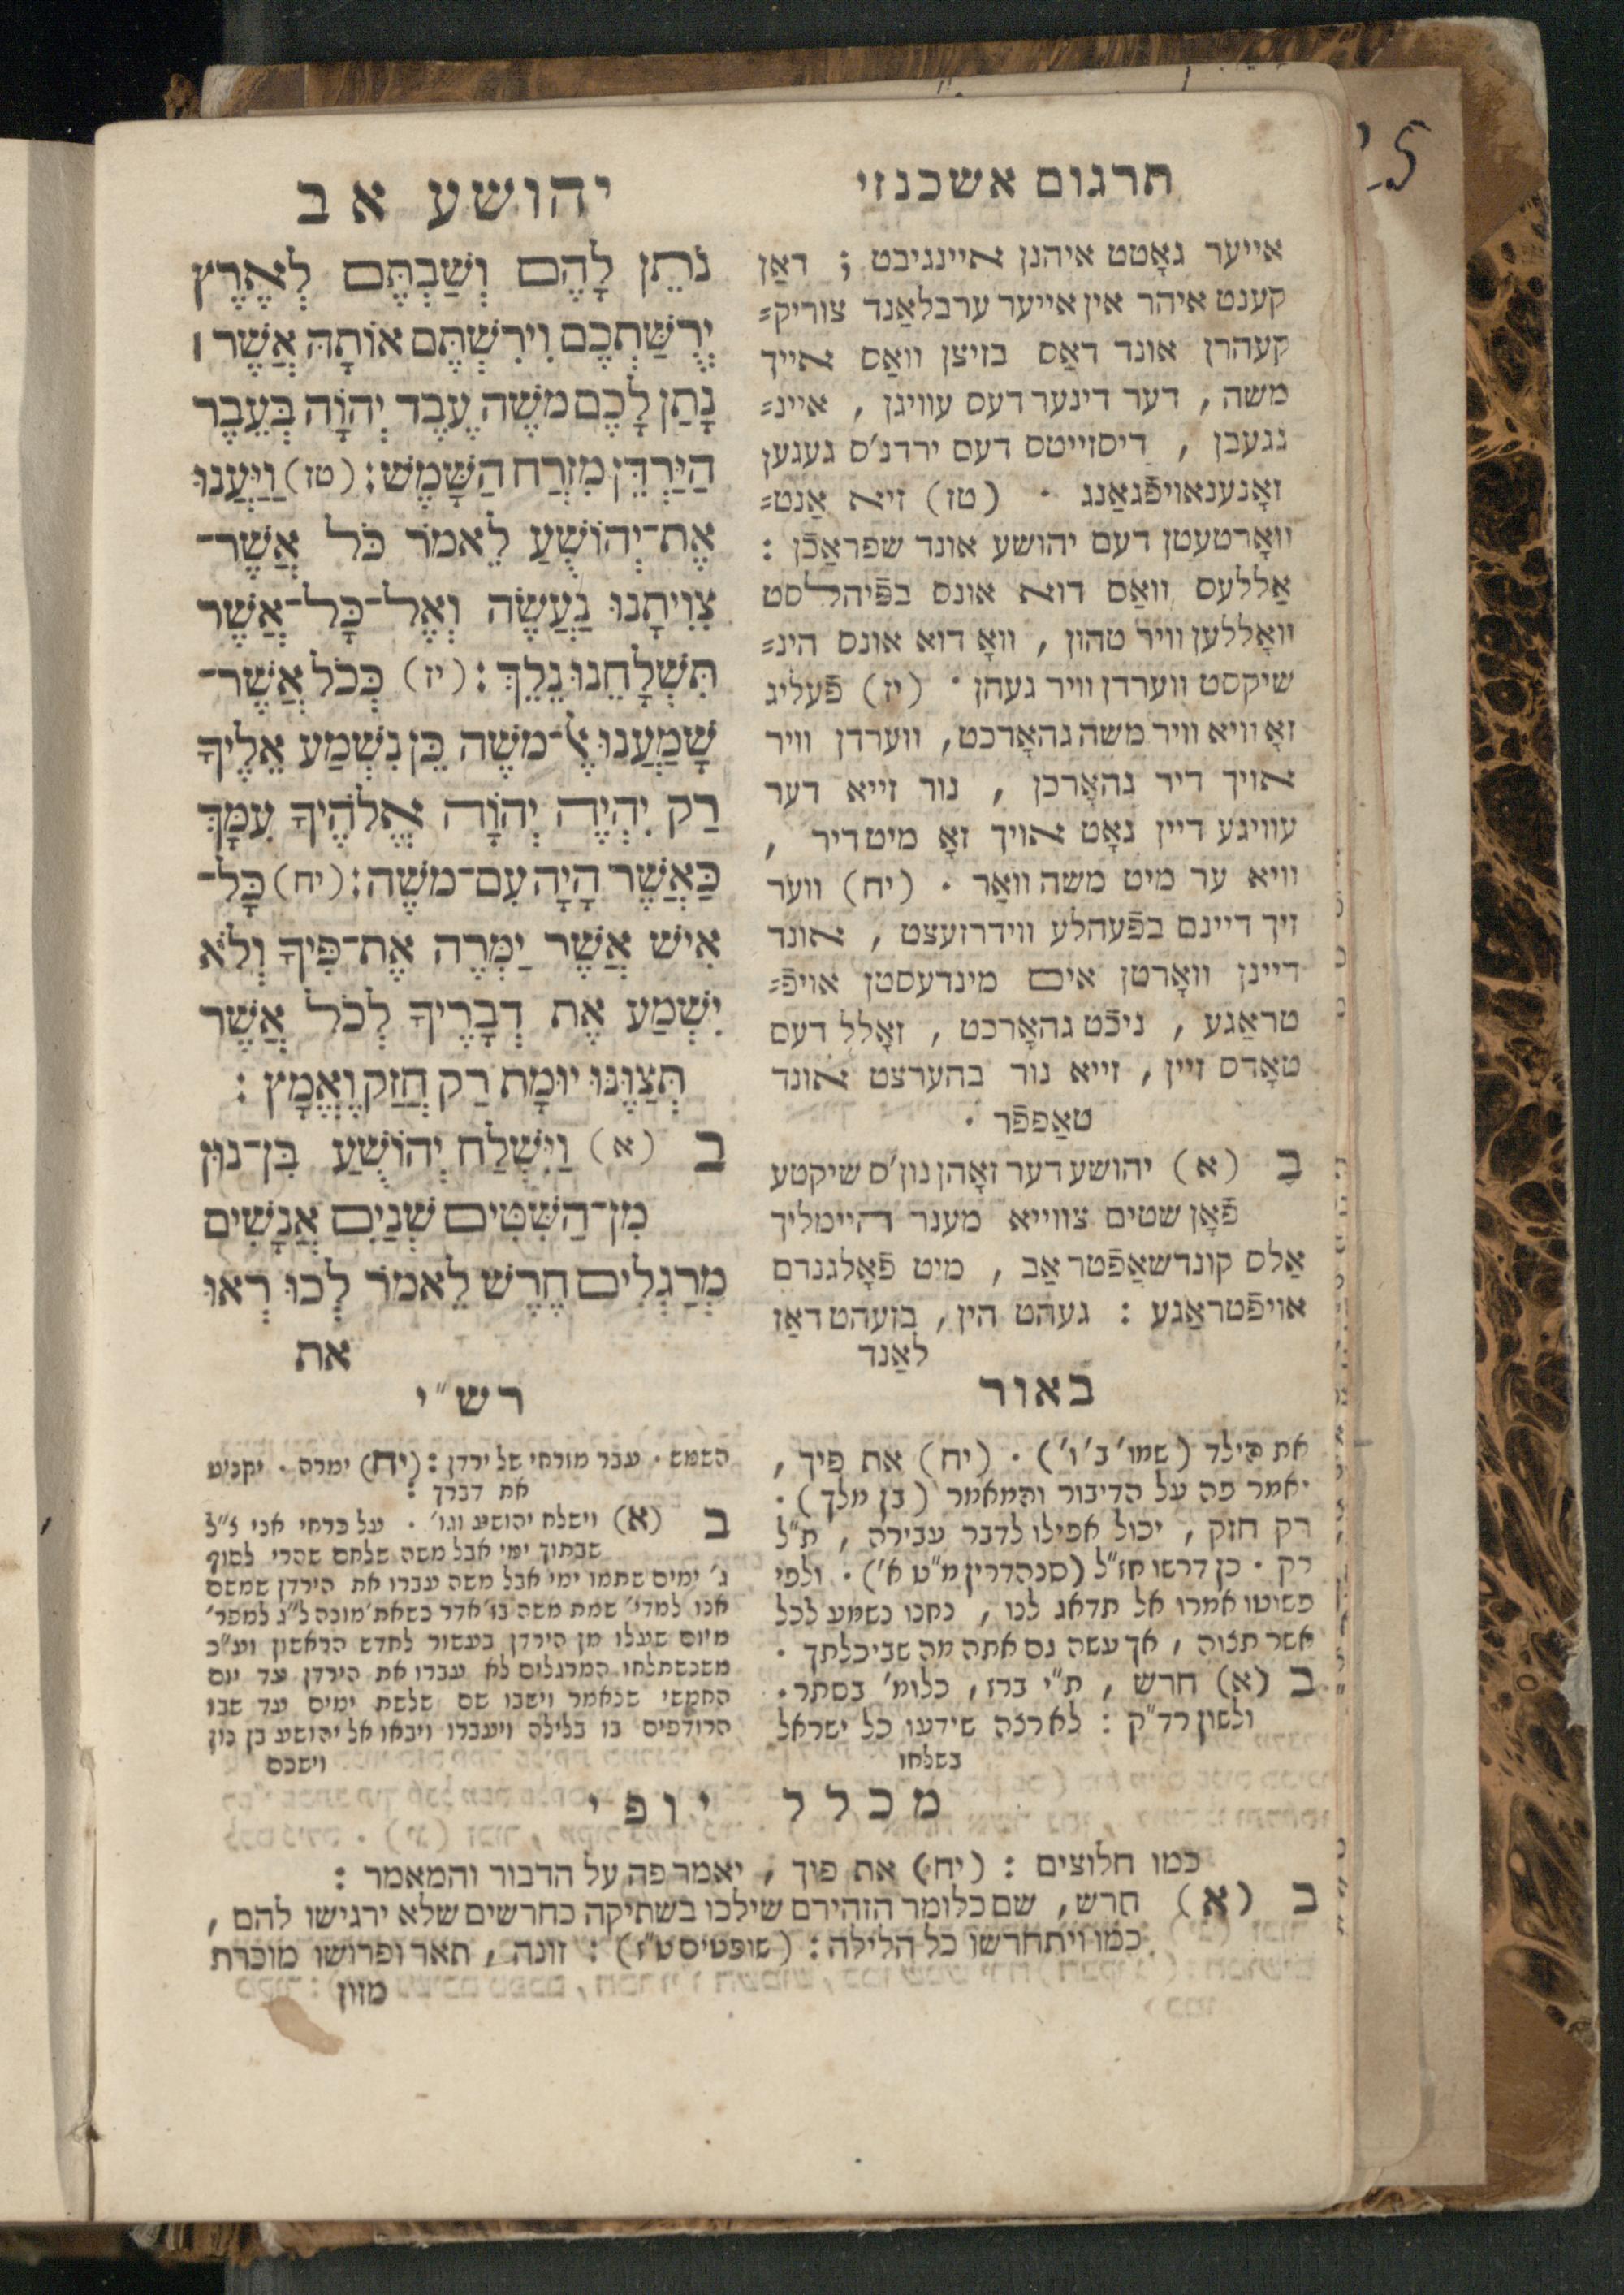 יהושע א ב
נֹתֵן לָהֶם וְשַׁבְתֶּם לְאֶרֶץ
יְרֻשַּׁתְכֶם וִירִשְׁתֶּם אוֹתָהּ אֲשֶׁר ׀
נָתַן לָכֶם מֹשֶׁה עֶבֶד יְהוָֹה בְּעֵבֶר
הַיַּרְדֵּן מִזְרַח הַשָּׁמֶשׁ : (טז) וַיַּעֲנוּ
אֶת־יְהוֹשֻׁעַ לֵאמֹר כֹּל אֲשֶׁר־
צִוִּיתָנוּ נַעֲשֶׂה וְאֶל־כָּל־אֲשֶׁר
תִּשְׁלָחֵנוּ נֵלֵךְ : (יז) כְּכֹל אֲשֶׁר־
שָׁמַעְנוּ אֶל־מֹשֶׁה כֵּן נִשְׁמַע אֵלֶיךָ
רַק יִהְיֶה יְהוָֹה אֱלֹהֶיךָ עִמָּךְ
כַּאֲשֶׁר הָיָה עִם־מֹשֶׁה : (יח) כָּל־
אִישׁ אֲשֶׁר יַמְרֶה אֶת־פִּיךָ וְלֹא
יִשְׁמַע אֶת דְּבָרֶיךָ לְכֹל אֲשֶׁר
תְּצַוֶּנּוּ יוּמָת רַק חֲזַק וֶאֱמָץ :
ב (א) וַיִּשְׁלַח יְהוֹשֻׁעַ בִּן־נוּן
מִן־הַשִּׁטִּים שְׁנַיִם אֲנָשִׁים
מְרַגְּלִים חֶרֶשׁ לֵאמֹר לְכוּ רְאוּ
את
תרגום אשכנזי
אייער גאָטט איהנן איינגיבט ; דאַן
קענט איהר אין אייער ערבלאַנד צוריק=
קעהרן אונד דאַס בזיצן וואַס אייך
משה , דער דינער דעס עוויגן , איינ=
געבן , דיסזייטס דעס ירדנ'ס געגען
זאָנענאויפֿגאַנג . (טז) זיא אַנט=
וואָרטעטן דעם יהושע אונד שפראַכֿן :
אַללעס וואַס דוא אונס בפֿיהלסט
וואָללען וויר טהון , וואָ דוא אונס הינ=
שיקסט ווערדן וויר געהן . (יז) פֿעליג
זאָ וויא וויר משה גהאָרכט , ווערדן וויר
אויך דיר גהאָרכן , נור זייא דער
עוויגע דיין גאָט אויך זאָ מיט דיר ,
וויא ער מיט משה וואַר . (יח) ווער
זיך דיינם בפֿעהלע ווידרזעצט , אונד
דיינן וואָרטן אים מינדעסטן אויפֿ=
טראַגע , ניכֿט גהאָרכט , זאָלל דעס
טאָדס זיין , זייא נור בהערצט אונד
טאַפפֿר .
ב (א) יהושע דער זאָהן נון'ס שיקטע
פֿאָן שטים צווייא מענר היימליך
אַלס קונדשאַפֿטר אַב , מיט פֿאָלגנדם
אויפֿטראַגע : געהט הין , בזעהט דאַז
לאַנד
רש"י
השמש . עבר מזרחי של ירדן : (יח) ימרה . יקניט
את דברך :
ב (א) וישלח יהושע וגו' . על כרחי אני צ"ל
שבתוך ימי אבל משה שלחם שהרי לסוף
ג' ימים שתמו ימי אבל משה עברו את הירדן שמשם
אנו למדי' שמת משה בז' אדר כשאת' מונה ל"ג למפר'
מיום שעלו מן הירדן בעשור לחדש הראשון וע"כ
משנשתלחו המרגלים לא עברו את הירדן עד יום
החמשי שנאמר וישבו שם שלשת ימים עד שבו
הרודפים בו בלילה ויעברו ויבאו אל יהושע בן נון
וישכם
באור
את הילד (שמו' ב' ו') . (יח) את פיך ,
יאמר פה על הדיבור והמאמר (בן מלך) .
רק חזק , יכול אפילו לדבר עבירה , ת"ל
רק . כן דרשו חז"ל (סנהדרין מ"ט א') . ולפי
פשוטו אמרו אל תדאג לנו , נחנו נשמע לכל
אשר תצוה , אך עשה גם אתה מה שביכלתך .
ב (א) חרש , ת"י ברז , כלומ' בסתר .
ולשון רד"ק : לא רצה שידעו כל ישראל
בשלחו
מכלל יופי
כמו חלוצים : (יח) את פיך , יאמר פה על הדבור והמאמר :
ב (א) חרש , שם כלומר הזהירם שילכו בשתיקה כחרשים שלא ירגישו להם ,
כמו ויתחרשו כל הלילה : (שופטים ט"ז) : זונה , תאר ופרושו מוכרת
מזון